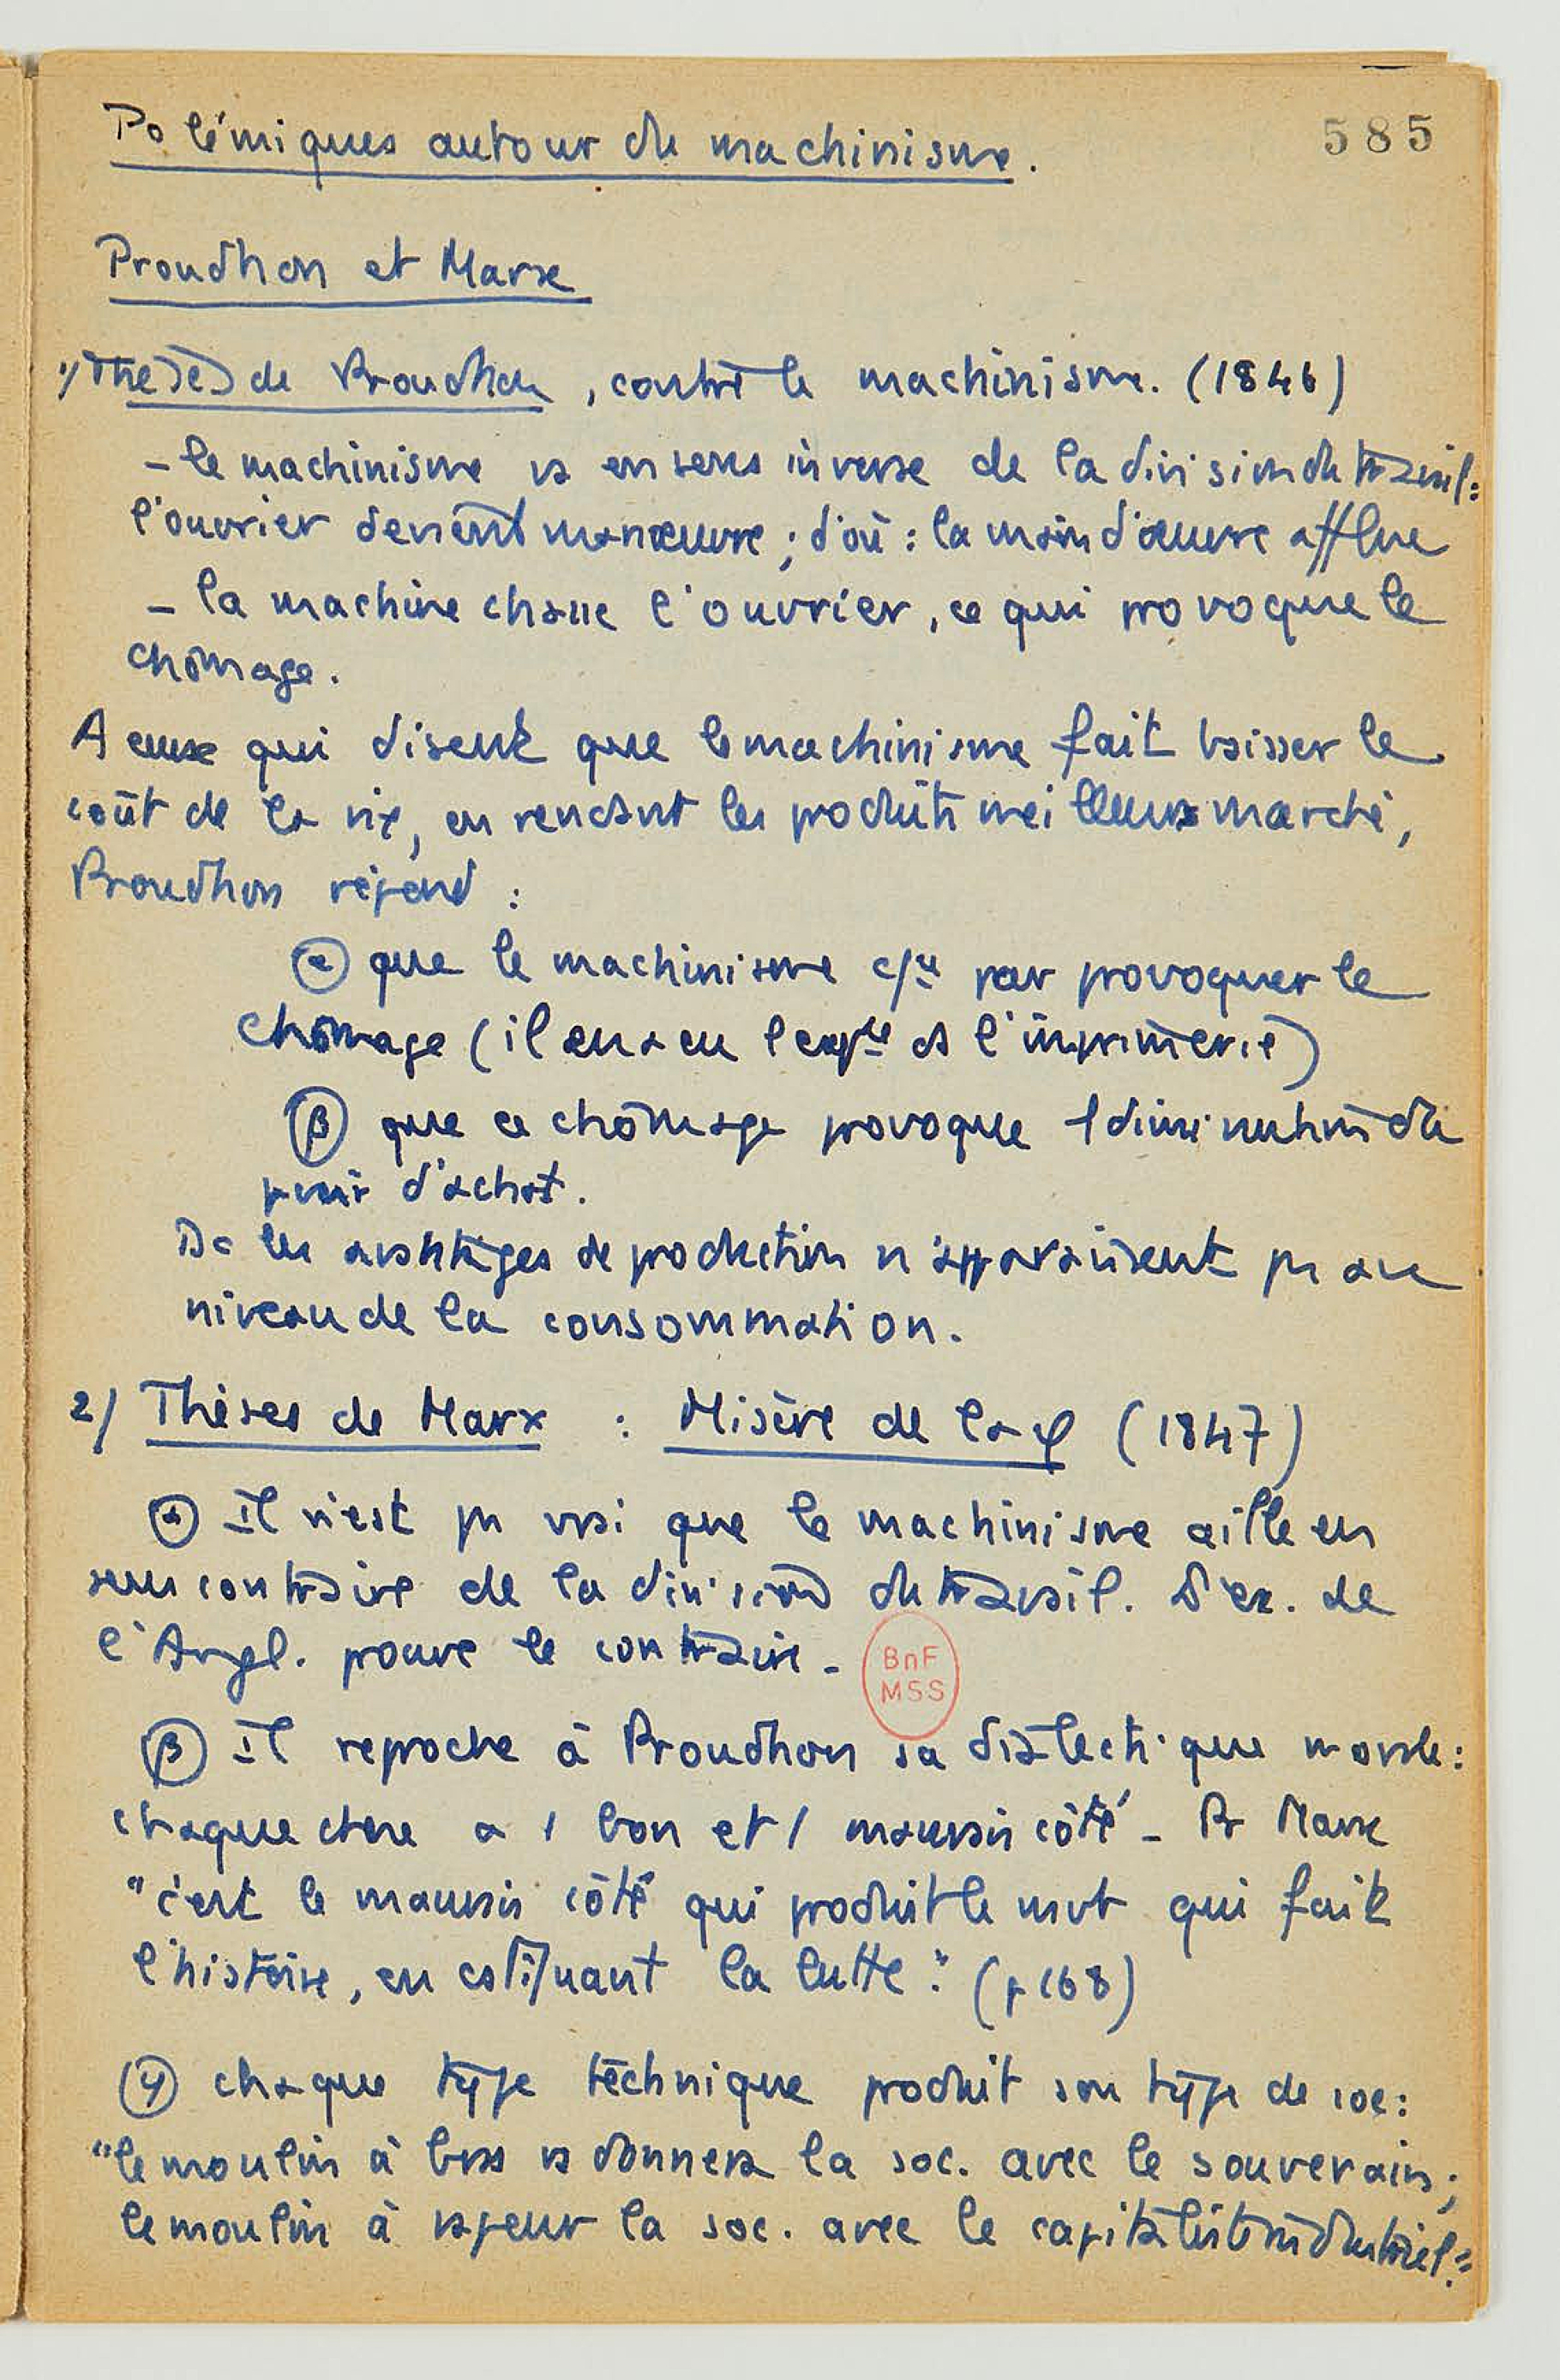 Polémiques autour du machinisme.
585
Proudhon et Marx
1/ Thèses de Proudhon, contre le machinisme. (1846)
- le machinisme va en sens inverse de la division du travail :
l'ouvrier devient manœuvre ; d'où : la main d'œuvre afflue
- la machine chasse l'ouvrier, ce qui provoque le
chômage.
A ceux qui disent que le machinisme fait baisser le
coût de la vie, en rendant les produits meilleurs marché,
Proudhon répond :
α que le machinisme c/ce par provoquer le
chômage (il en a eu l'expce ds l'imprimerie)
β que ce chômage provoque 1 diminution du
pvoir d'achat.
Dc les avantages de production n'apparaissent pas au
niveau de la consommation.
2/ Thèses de Marx : Misère de la φ (1847)
α Il n'est pas vrai que le machinisme aille en
sens contraire de la division du travail. L'ex. de
l'Angl. prouve le contraire -
BnF
MSS
β Il reproche à Proudhon sa dialectique morale :
chaque chose a 1 bon et 1 mauvais côté - Pr Marx
"c'est le mauvais côté qui produit le mvt qui fait
l'histoire, en cstituant la lutte." (p 168)
γ chaque type technique produit son type de soc :
"le moulin à bras va donnera la soc. avec le souverain ;
le moulin à vapeur la soc. avec le capitaliste industriel."